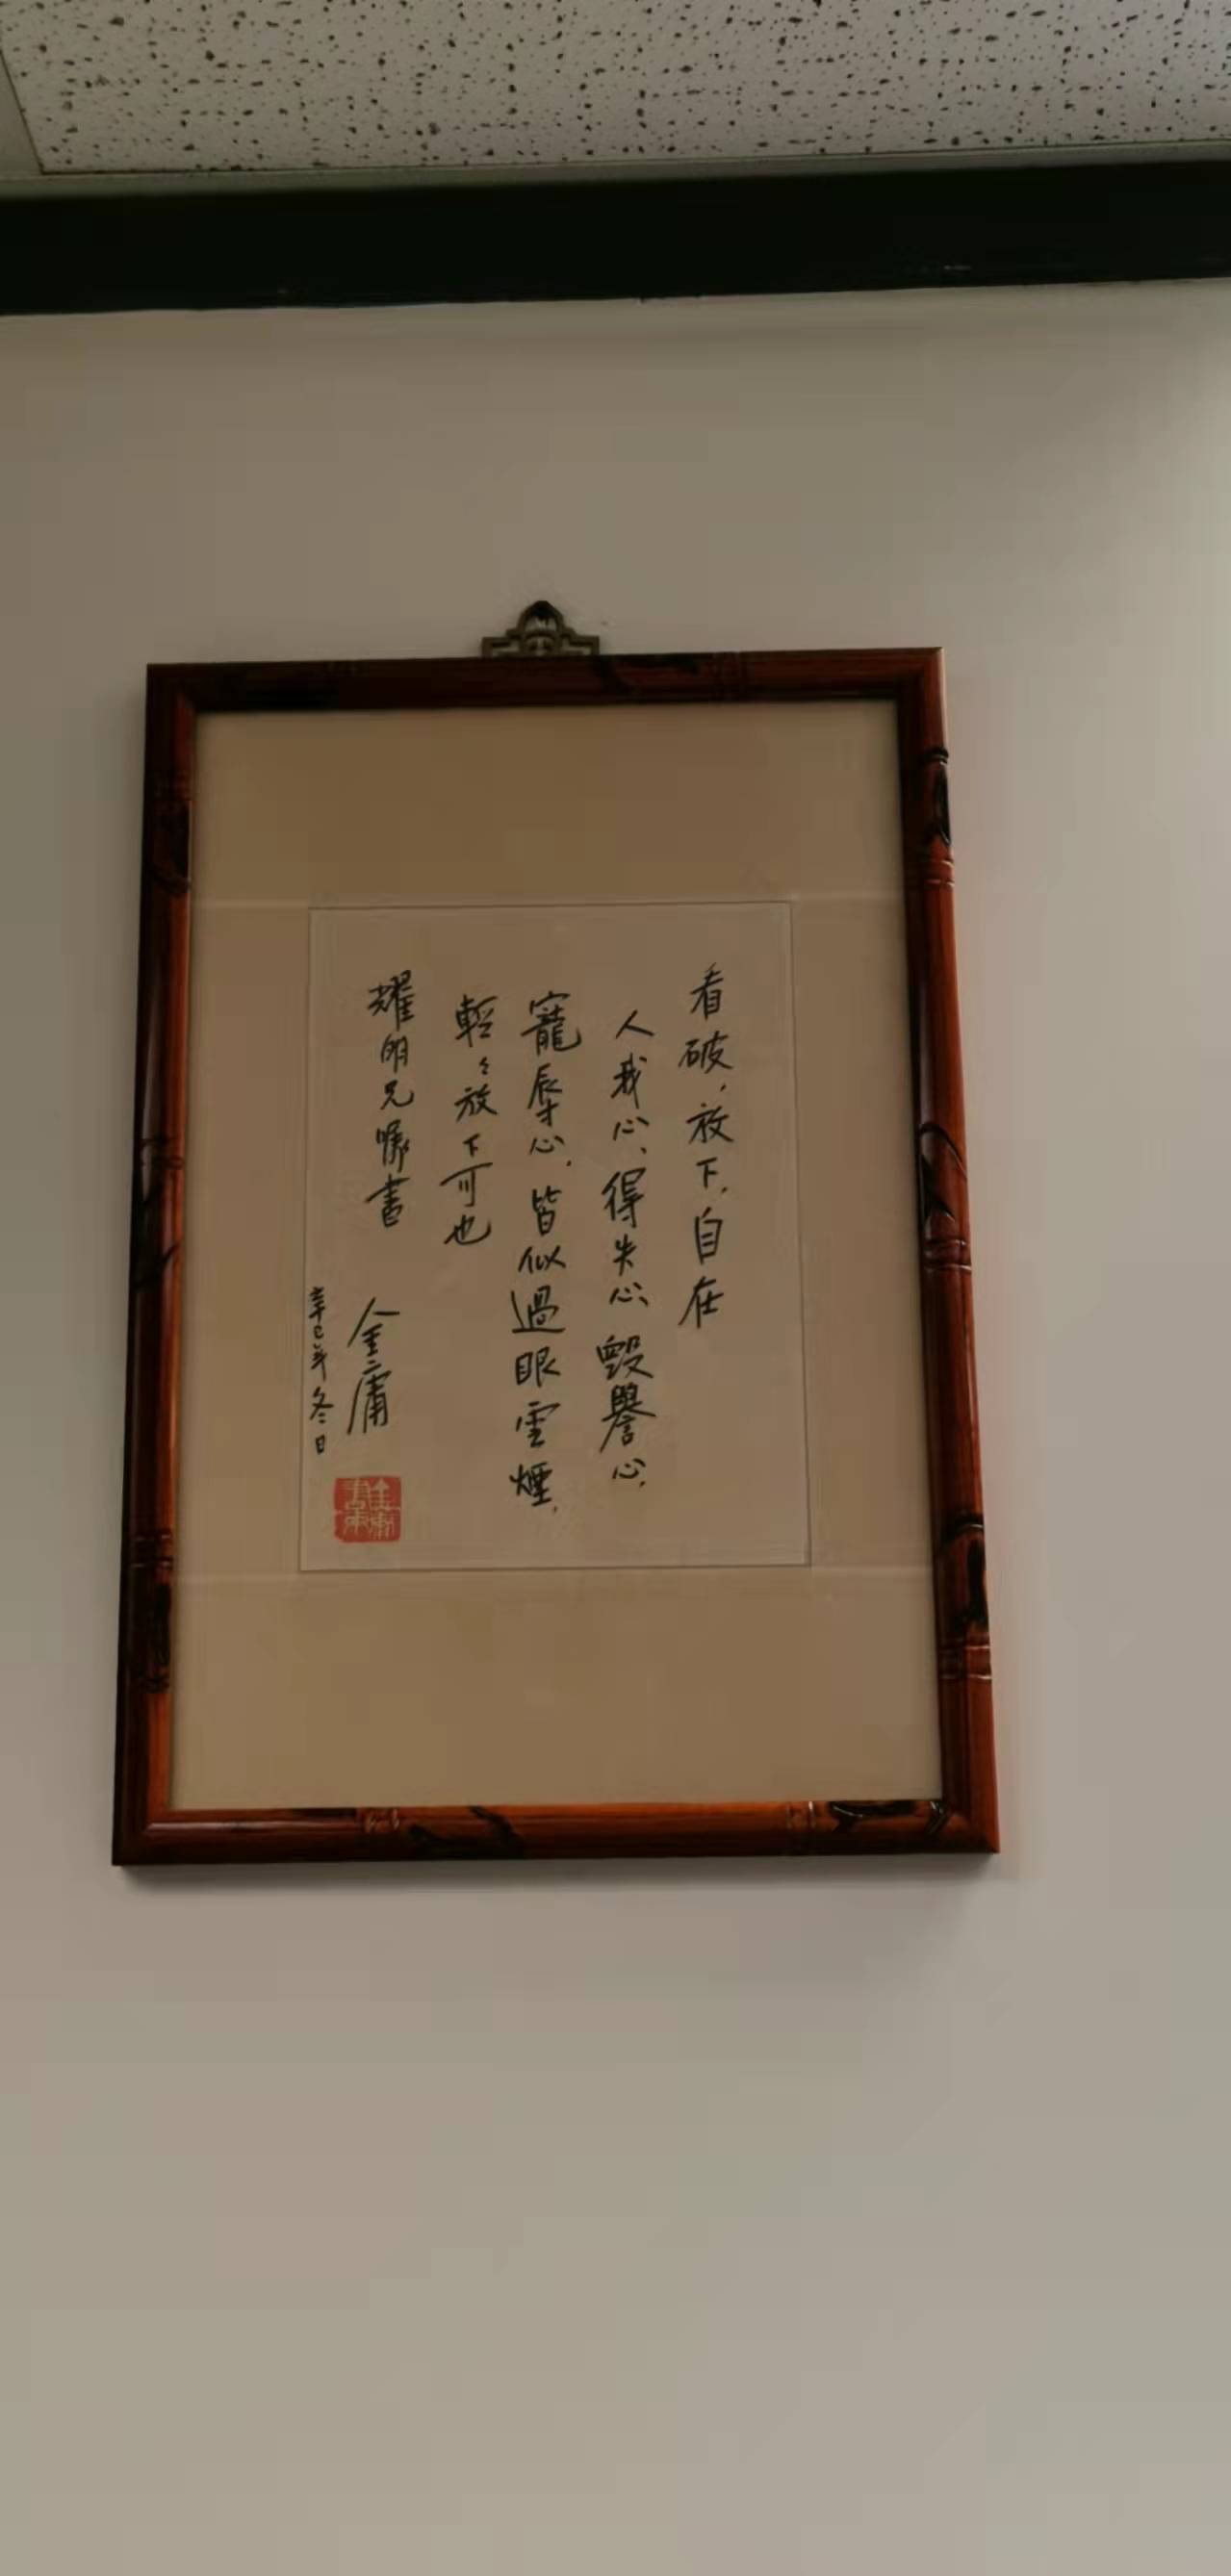 看破，放下，自在
人我心、得失心、毀譽心、
寵辱心，皆似過眼雲煙，
輕々放下可也
耀明兄囑書
金庸
辛巳年冬日